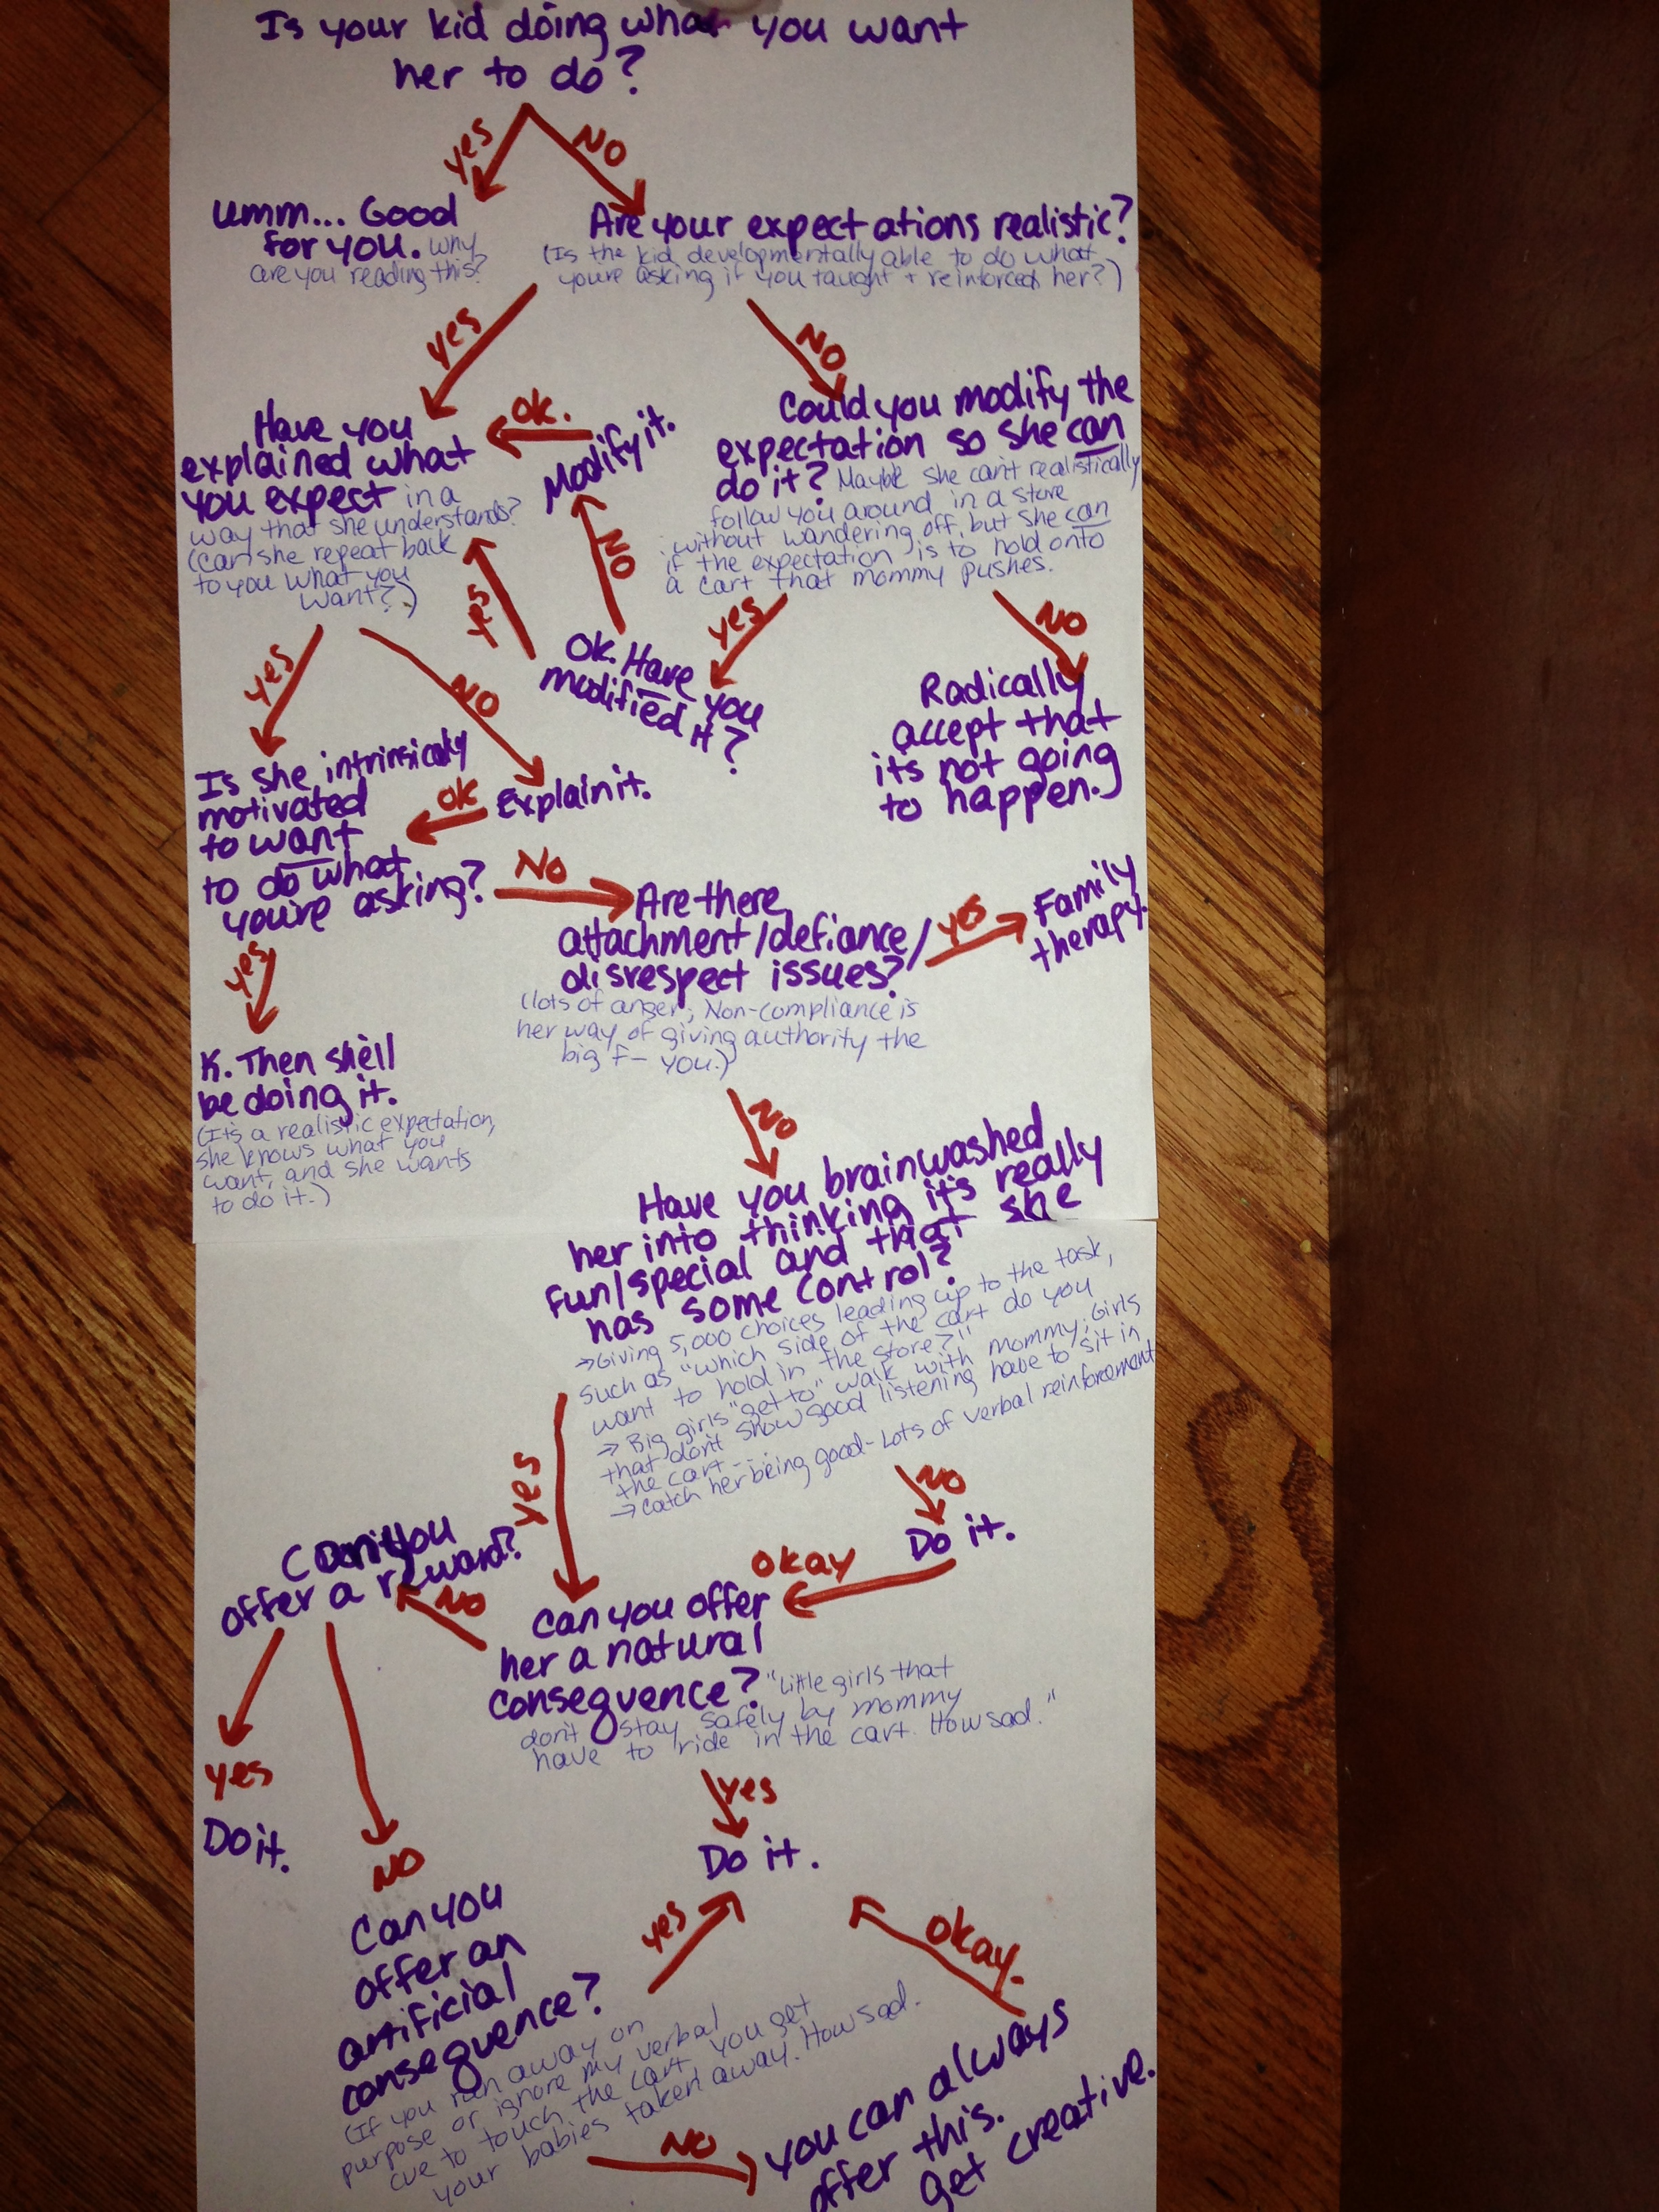 Is your kid doing what you want
her to do?
yes
NO
umm... Good
for you. Why
are you reading this?
Are your expectations realistic?
(Is the kid developmentally able to do what
you're asking if you taught + reinforced her?)
yes
NO
Have you
explained what
you expect in a
way that she understands?
(Can she repeat back
to you what you
want?)
ok.
Modify it.
Could you modify the
expectation so she can
do it? Maybe she can't realistically
follow you around in a store
without wandering off, but she can
if the expectation is to hold onto
a cart that mommy pushes.
yes
NO
yes
NO
Ok. Have you
modified it?
Radically
accept that
its not going
to happen.
yes
NO
Is she intrinsically
motivated
to want
to do what
you're asking?
ok
Explain it.
No
Are there
attachment/defiance/
disrespect issues?
(lots of anger; Non-compliance is
her way of giving authority the
big F- you.)
yes
Family
therapy.
yes
K. Then she'll
be doing it.
(It's a realistic expectation,
she knows what you
want, and she wants
to do it.)
No
Have you brainwashed
her into thinking it's really
fun/special and that she
has some control?
→Giving 5,000 choices leading up to the task,
such as "which side of the cart do you
want to hold in the store?"
→ Big girls "get to" walk with mommy; Girls
that don't show good listening have to sit in
the cart---
→ catch her being good- Lots of verbal reinforcement
yes
NO
Do it.
okay
Can you
offer a reward?
NO
Can you offer
her a natural
consequence? "Little girls that
don't stay safely by mommy
have to ride in the cart. How sad."
yes
Do it.
yes
Do it.
NO
Can you
offer an
artificial
consequence?
(If you run away on
purpose or ignore my verbal
cue to touch the cart, you get
your babies taken away. How sad.
yes
okay.
NO
you can always
offer this.
Get creative.